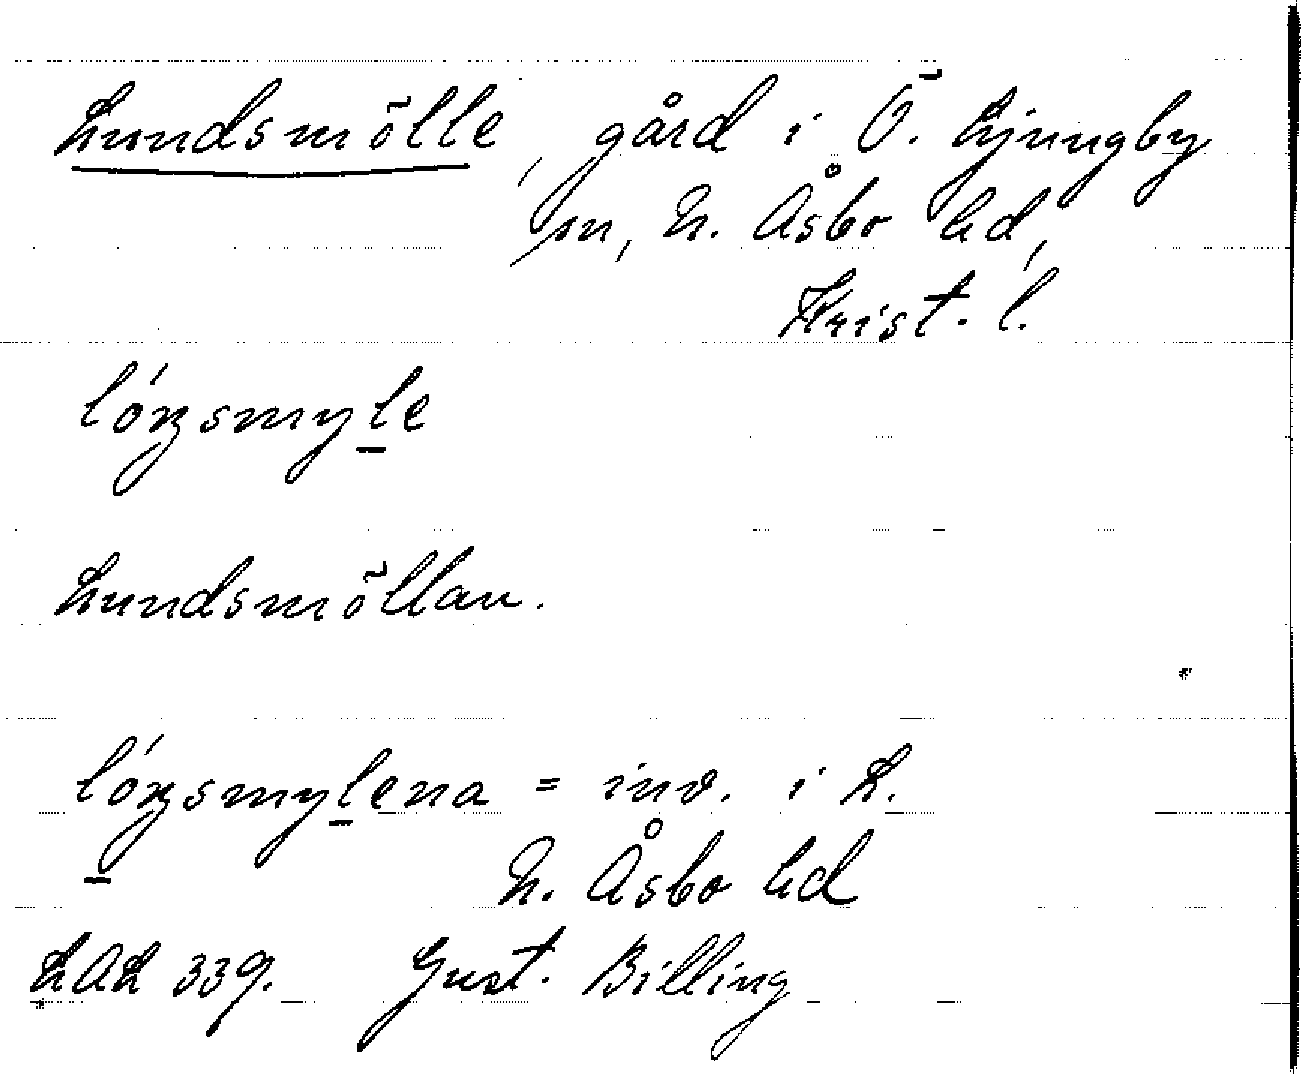 Lundsmölle, gård i Ö. Ljungby
sn, N. Åsbo hd,
Krist. l.
lóŋsmyle
Lundsmöllan.
lóŋsmylena = inv. i L.
N. Åsbo hd
LAL 339. Gust. Billing